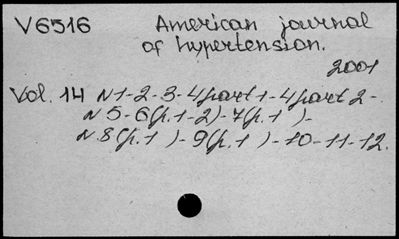 V6516 American journal
of hypertension.
2001
Vol. 14 N1-2-3-4part1-4part2-
N5-6(p.1-2)-7(p.1 )-
N8(p.1 )-9(p.1 )-10-11-12.